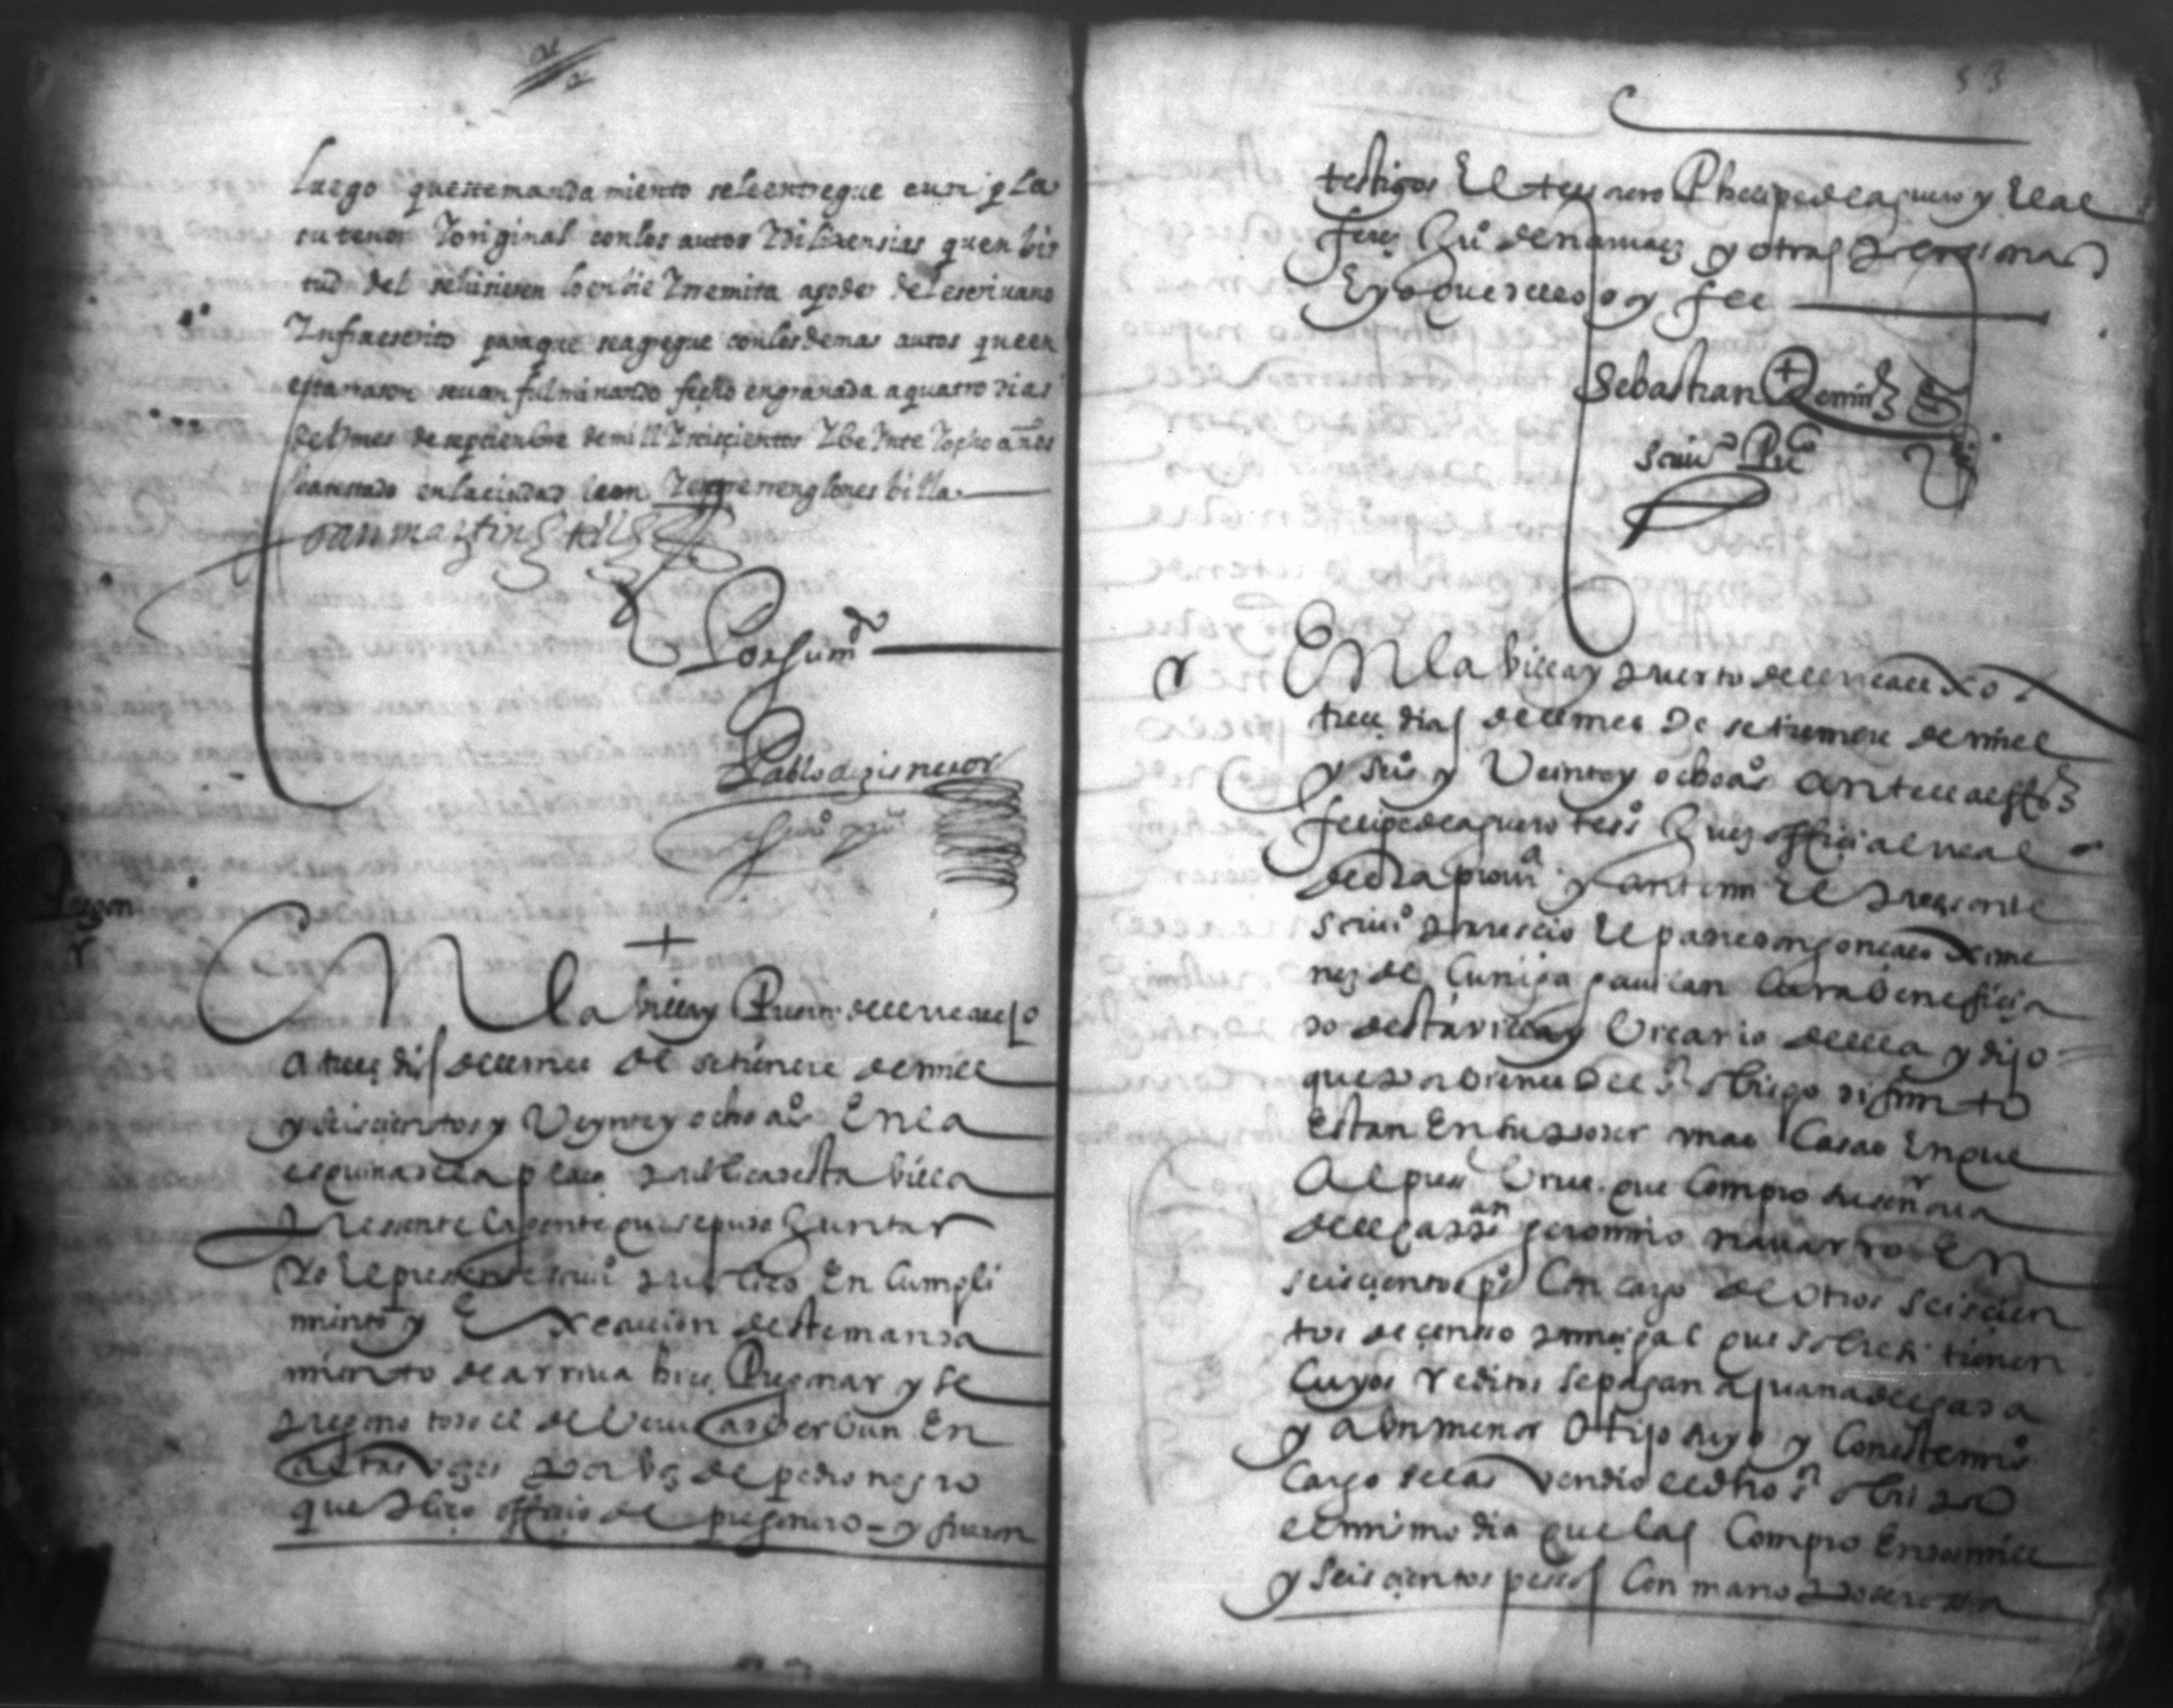 luego queste mandamiento sele entregue cunpla
su tenor Y original con los autos Y diligensias que en bir
tud del se hisieren lo enbie Y remita a poder del escriuano
Ynfraescrito para que se agregue con los demas autos que en
esta rason se uan fulminando fecho en granada a quatro dias
del mes de septienbre de mill Y seiscientos Y beYnte Y ocho años
en la ciudad leon Y entre renglones billa
Por su mdo
Pablo de cisneros
Pregon
En la billa y Puerto del rrealejo
a trece dias del mes de setiembre de mill
y seiscientos y Veynte y ocho as En la
esquina de la plaça publica desta billa
presente la gente que se pudo Juntar
Yo el presente scriuo publico En Cumpli
miento y Execucion deste manda
miento de arriua hice Pregonar y se
pregono todo el de Verbo ad Verbun En
altas voçes por boz de pedro negro
que hiço officio de pregonero = y fueron
53
testigos El tesorero Phelipe de aguero y El al
feres Ju de naruaez y otras personas
E yo que dello doy fee
Sebastian
scriuo Puco
En la billa y puerto del rrealexo a
trece dias del mes de setiembre de mill
y seiso y Veinte y ocho as ante el
felipe de aguero teso Juez official real
desta proua y ante mi El presente
scriuo parescio El padre don gonçalo xime
nez de Cuniga gauilan Cura benefiçia
do desta villa y Vicario della y dijo
que por bienes del sr obispo difunto
Estan En su poder unas Casas En que
Al presте Viue que Compro su señoria
del capan geronimo nauarro En
seiscientos ps Con cargo de otros seiscien
tos de censo principal que sobre si tienen
Cuyos reditos se pagan a juana de
y a Un menor hijo suyo y Con el mismo
Cargo se las vendio el dho sr obispo
el mismo dia que las Compro En dos mill
y seiscientos pesos Con mano poderosa